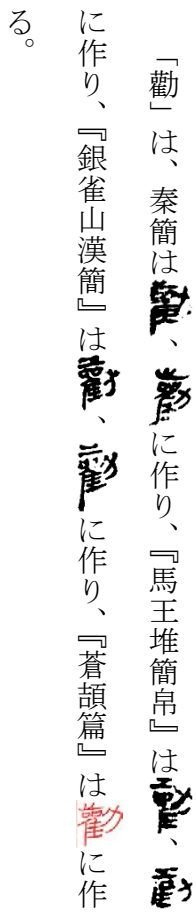 「勸」は、秦簡は勸、勸に作り、『馬王堆簡帛』は勸、勸
に作り、『銀雀山漢簡』は勸、勸に作り、『蒼頡篇』は勸に作
る。